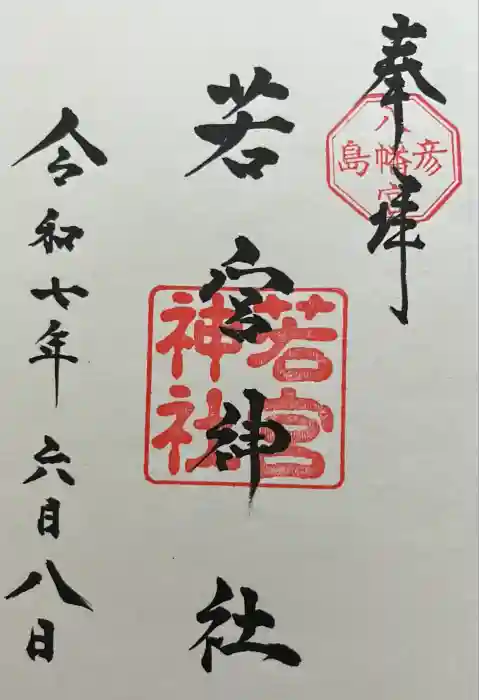 奉拝
彦島八幡宮
若宮神社
若宮神社
令和七年六月八日